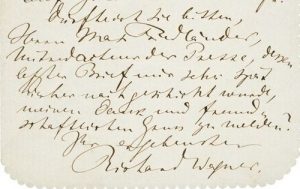 Dürfte ich Sie bitten,
Herrn Max Friedländer,
Mitredacteur der Presse, dessen
letzter Brief mir sehr spät
hieher nachgeschickt wurde,
meinen Dank und freund-
schaftlichen Gruss zu melden?
Ihr ergebenster
Richard Wagner.